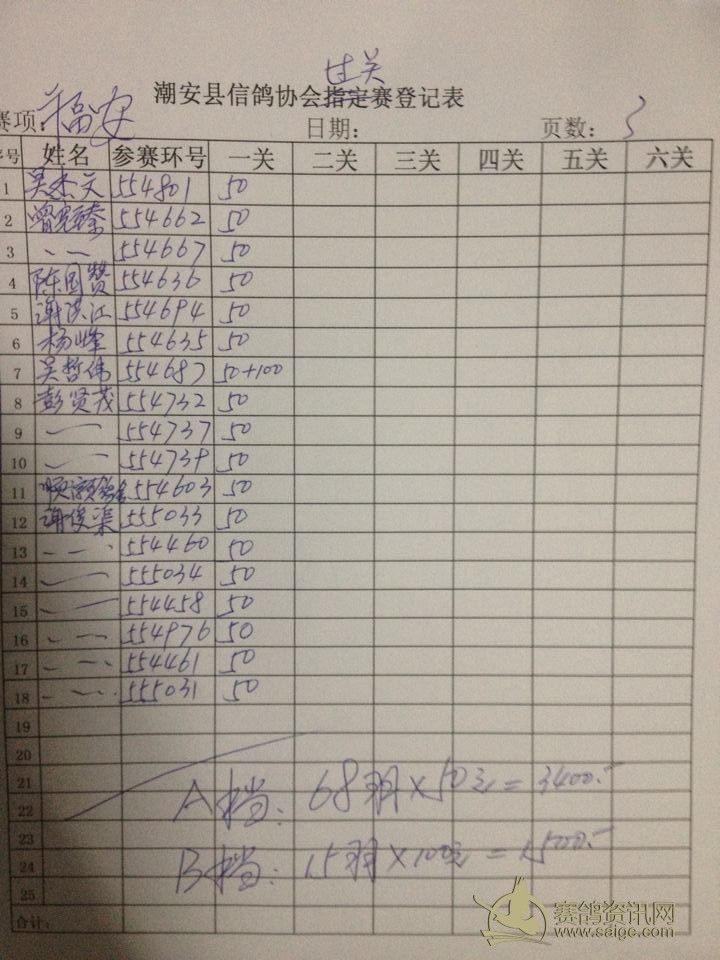 过关
潮安县信鸽协会指定赛登记表
赛项：福安 日期： 页数：3
序号 姓名 参赛环号 一关 二关 三关 四关 五关 六关
1 吴杰文 554801 50
2 曾宪臻 554662 50
3 〃 554667 50
4 陈国赞 554636 50
5 谢洪江 554694 50
6 杨峰 554635 50
7 吴哲伟 554687 50+100
8 彭贤茂 554732 50
9 〃 554737 50
10 〃 554739 50
11 554603 50
12 谢俊渠 555033 50
13 〃 554460 50
14 〃 555034 50
15 〃 554458 50
16 〃 554976 50
17 〃 554461 50
18 〃 555031 50
19
20
21
22
23
24
25
A档：68羽×50元=3400.-
B档：15羽×100元=1500.-
合计：
赛鸽资讯网
www.saige.com